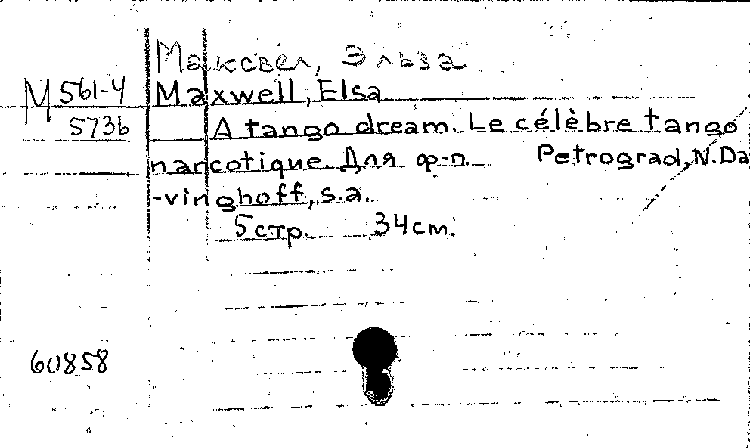 Максвел, Эльза
М 561-4 Maxwell, Elsa
573b A tango dream. Le célèbre tango
narcotique. Для ф-п. Petrograd, N.Da
-vinghoff, s.a.
5 стр. 34 cm.
60858